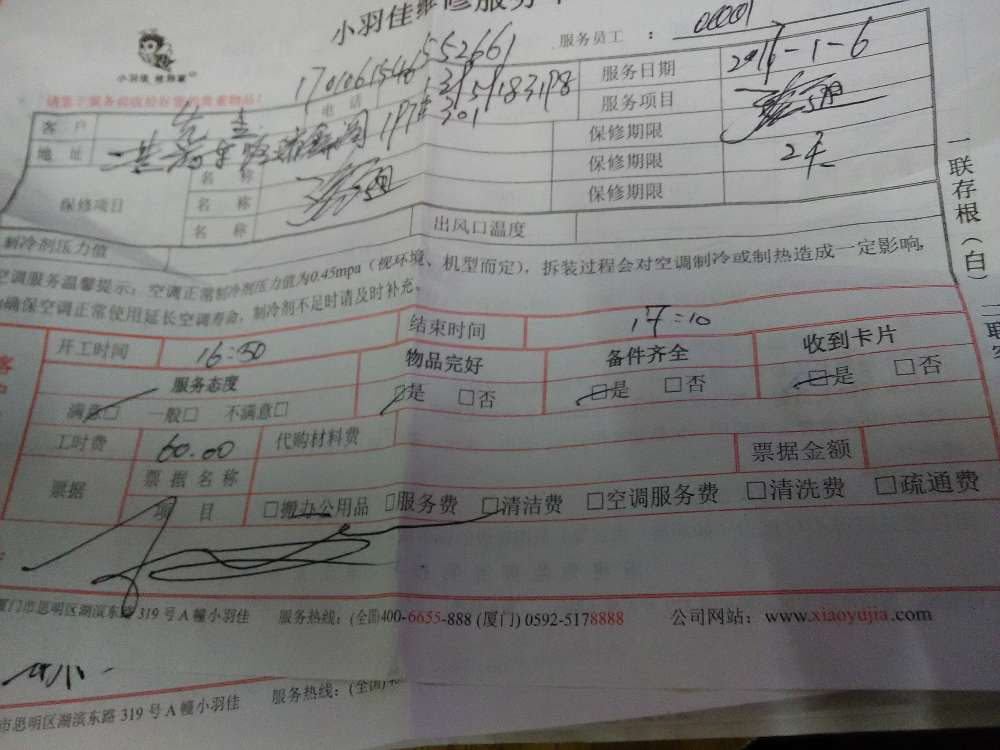 小羽佳维修服务
小羽佳 维修家
服务员工 : 00001
1701061546552661
请客户服务前收检好您的贵重物品!
电话 13159183198 服务日期 2016-1-6
客户 先生 服务项目
地址 197# 301 保修期限
保修项目 名称 保修期限 2天
名称 保修期限
名称
制冷剂压力值 出风口温度
空调服务温馨提示:空调正常制冷剂压力值为0.45mpa(视环境、机型而定),拆装过程会对空调制冷或制热造成一定影响,
确保空调正常使用延长空调寿命,制冷剂不足时请及时补充。
一联存根(白) 二联客
开工时间 16:30 结束时间 17:10
服务态度 物品完好 备件齐全 收到卡片
满意□ 一般□ 不满意□ □是 □否 □是 □否 □是 □否
工时费 60.00 代购材料费 票据金额
票据 票据名称
项目 □搬办公用品 □服务费 □清洁费 □空调服务费 □清洗费 □疏通费
厦门市思明区湖滨东路319号A幢小羽佳 服务热线:(全国)400-6655-888 (厦门) 0592-5178888 公司网站:www.xiaoyujia.com
市思明区湖滨东路 319 号 A 幢小羽佳 服务热线:(全国)